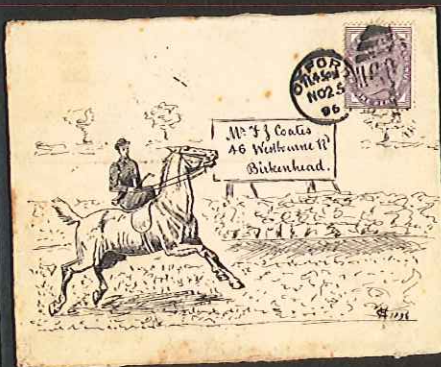 OXFORD
11.45PM
NO 25
96
Mr F J Coates
46 Westbourne Rd
Birkenhead.
1896